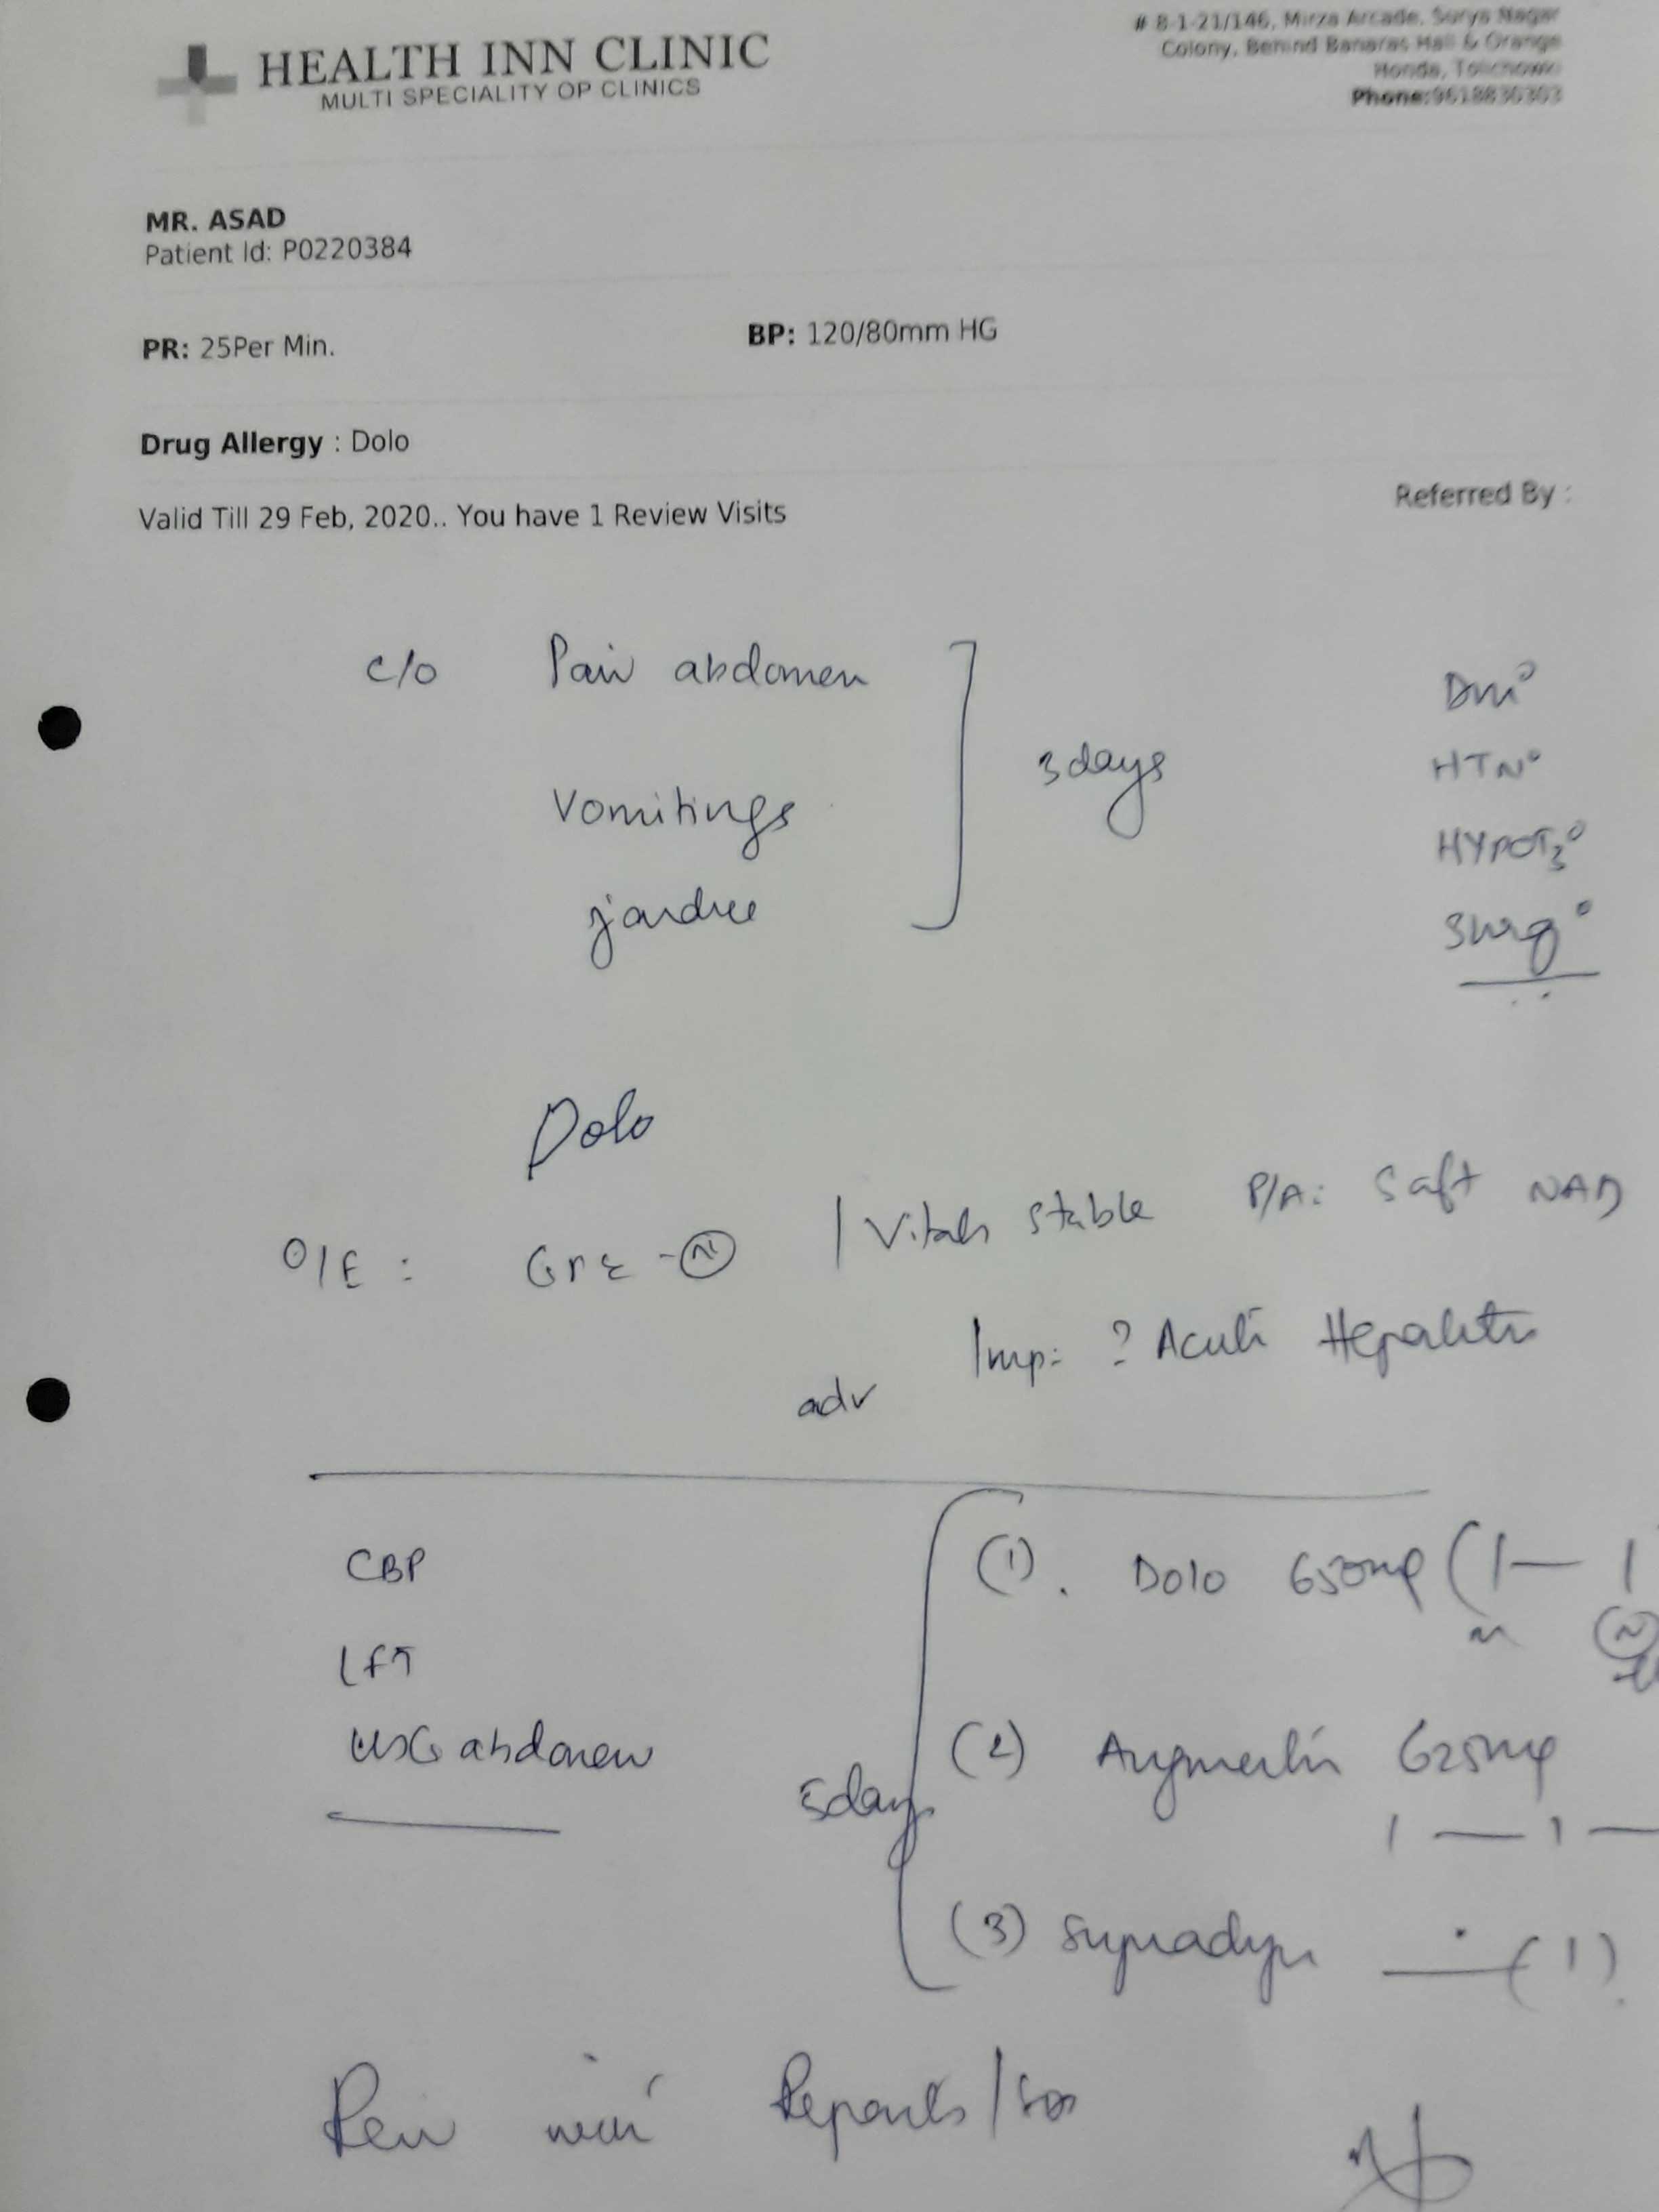 HEALTH INN CLINIC
MULTI SPECIALITY OP CLINICS
# 8-1-21/146, Mirza Arcade, Surya Nagar
Colony, Behind Banaras Hall & Orange
Honda, Tolichowki
Phone:9618836363
MR. ASAD
Patient Id: P0220384
PR: 25Per Min.
BP: 120/80mm HG
Drug Allergy : Dolo
Valid Till 29 Feb, 2020.. You have 1 Review Visits
Referred By :
c/o Pain abdomen
Vomitings
jaundice
3 days
DM°
HTN°
HYPOT3°
Surg°
Dolo
O/E : GPE - N | Vitals stable P/A: Soft NAD
Imp: ? Acute Hepatitis
adv
CBP
LFT
USG abdomen
5days
(1). Dolo 650mg (1— 1
(2) Augmentin 625mg
1 — 1 —
(3) Supradyn — (1)
Rev with Reports/sos